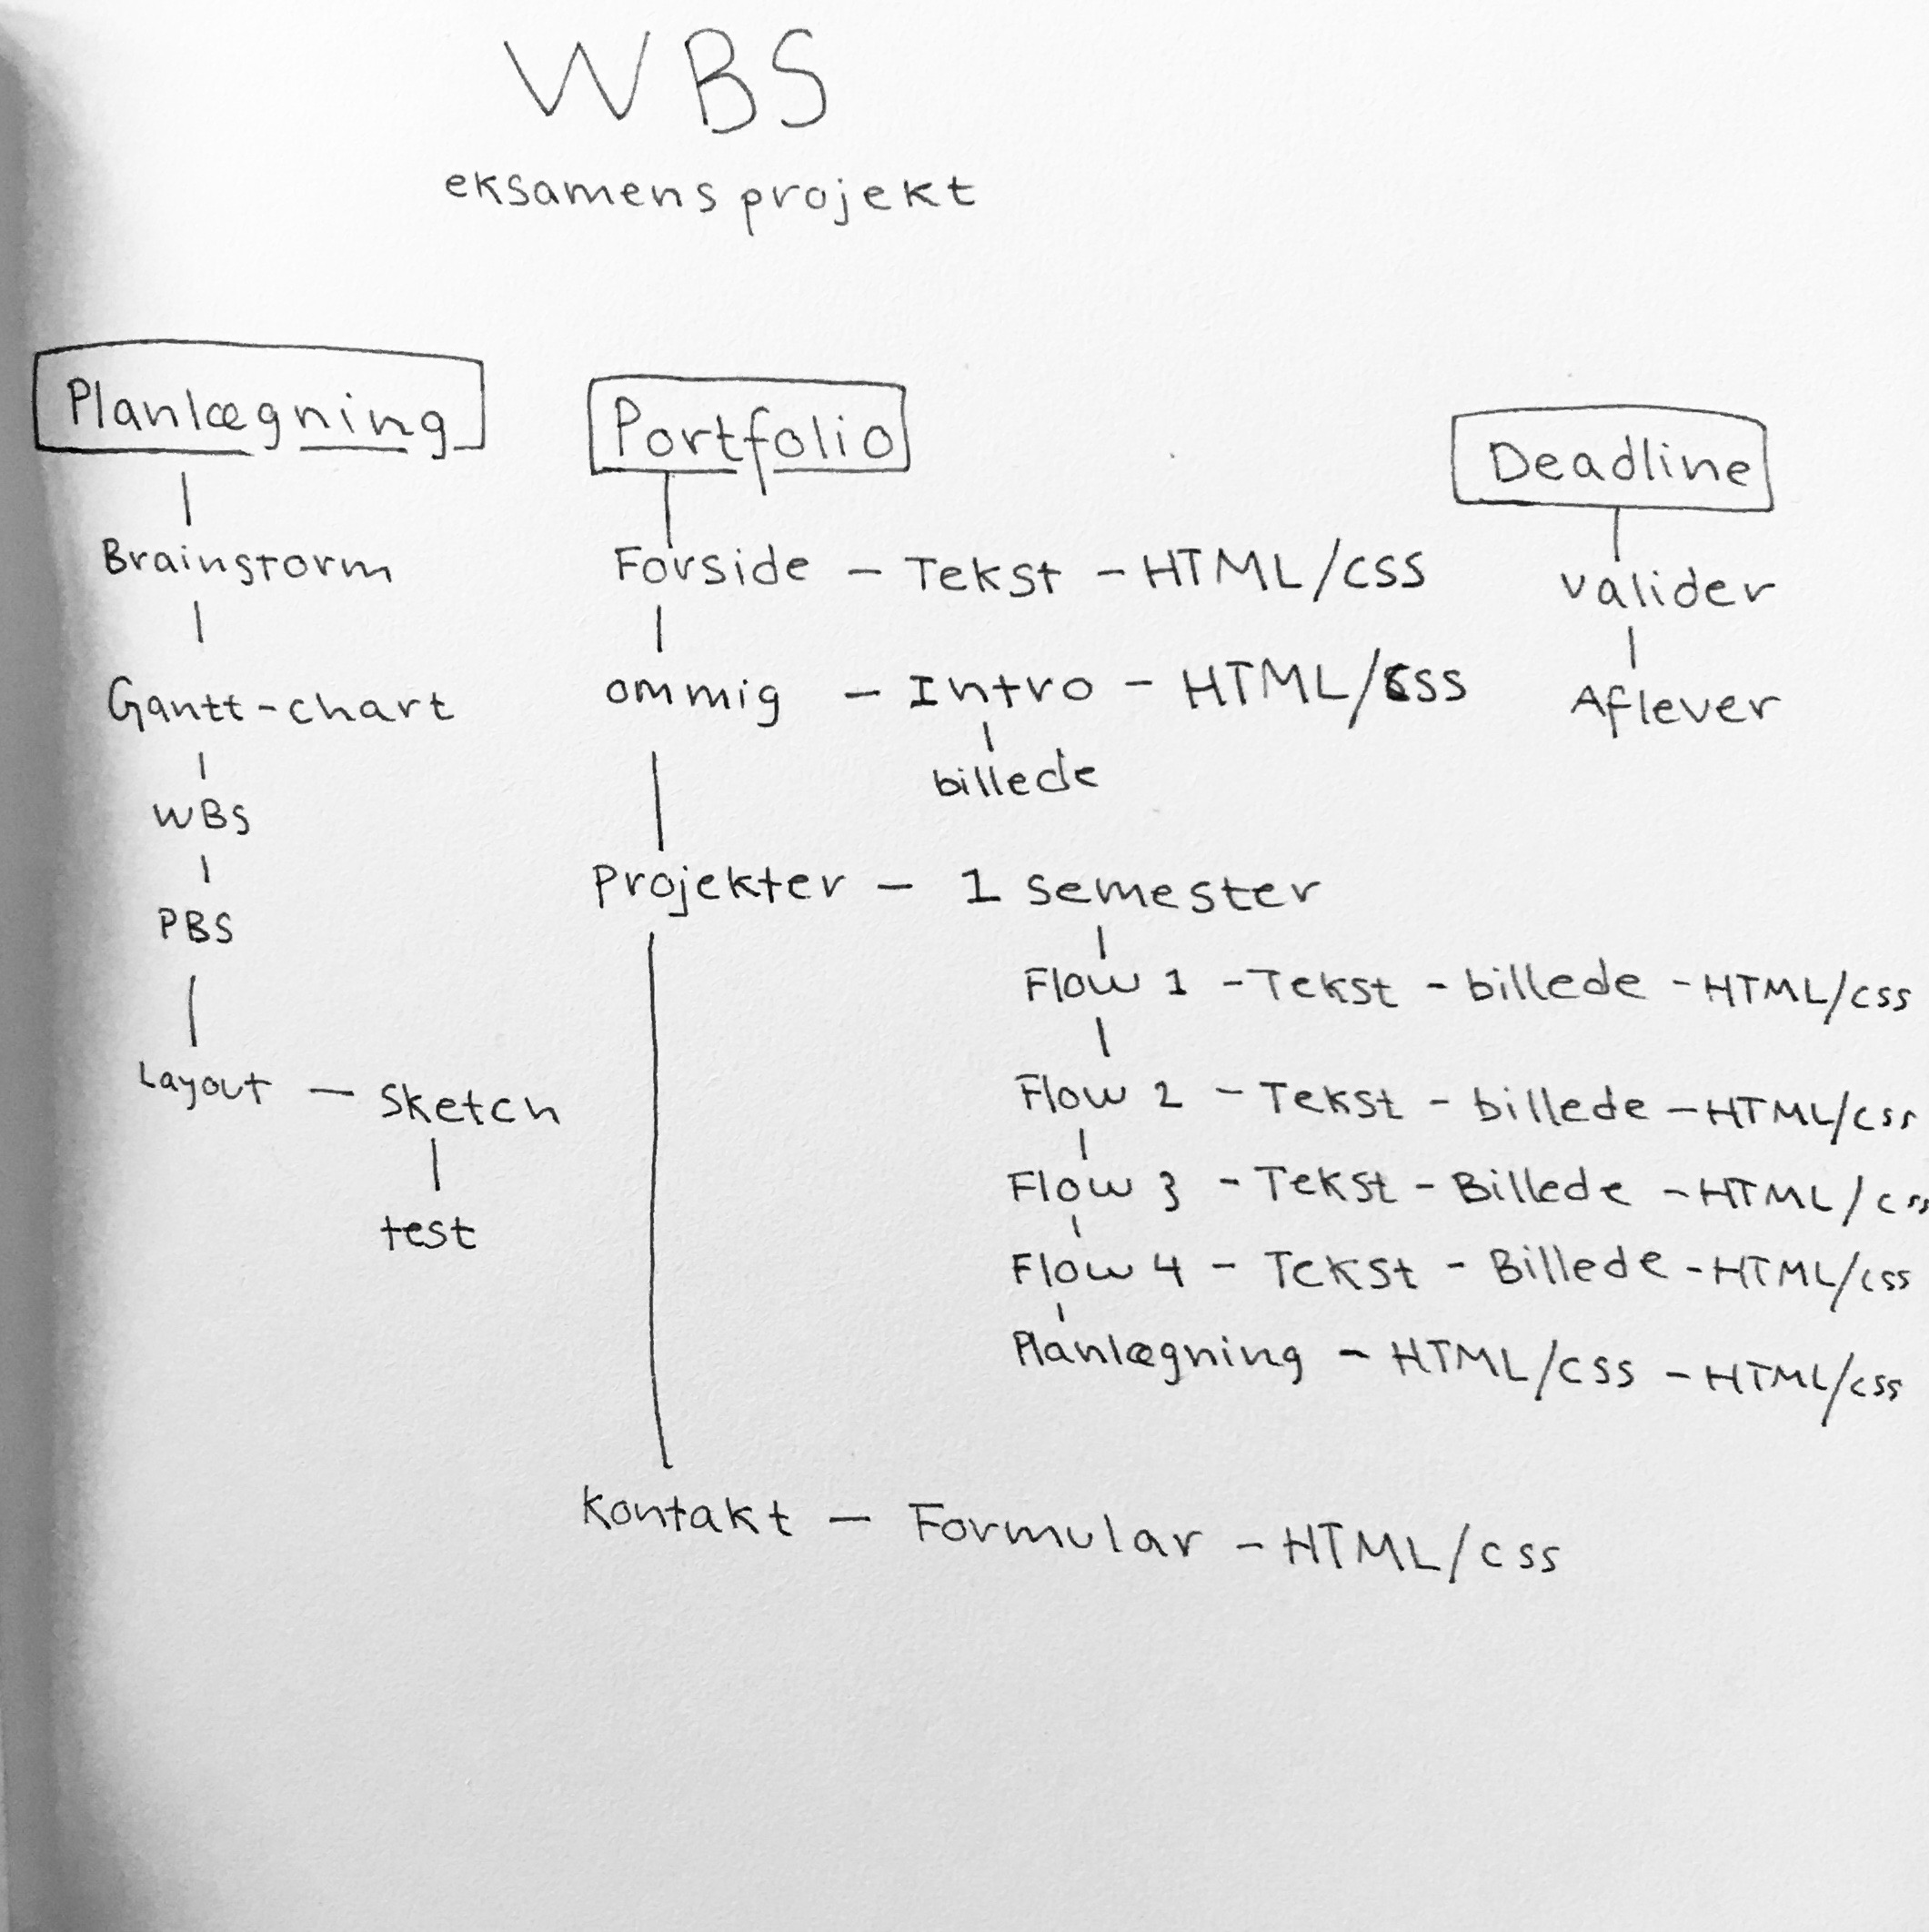 WBS
eksamens projekt
Planlægning
Brainstorm
Gantt-chart
WBS
PBS
Layout – Sketch
test
Portfolio
Forside – Tekst – HTML/CSS
ommig – Intro – HTML/CSS
billede
Projekter – 1 semester
Flow 1 – Tekst – billede – HTML/CSS
Flow 2 – Tekst – billede – HTML/CSS
Flow 3 – Tekst – Billede – HTML/CSS
Flow 4 – Tekst – Billede – HTML/CSS
Planlægning – HTML/CSS – HTML/CSS
Kontakt – Formular – HTML/CSS
Deadline
valider
Aflever